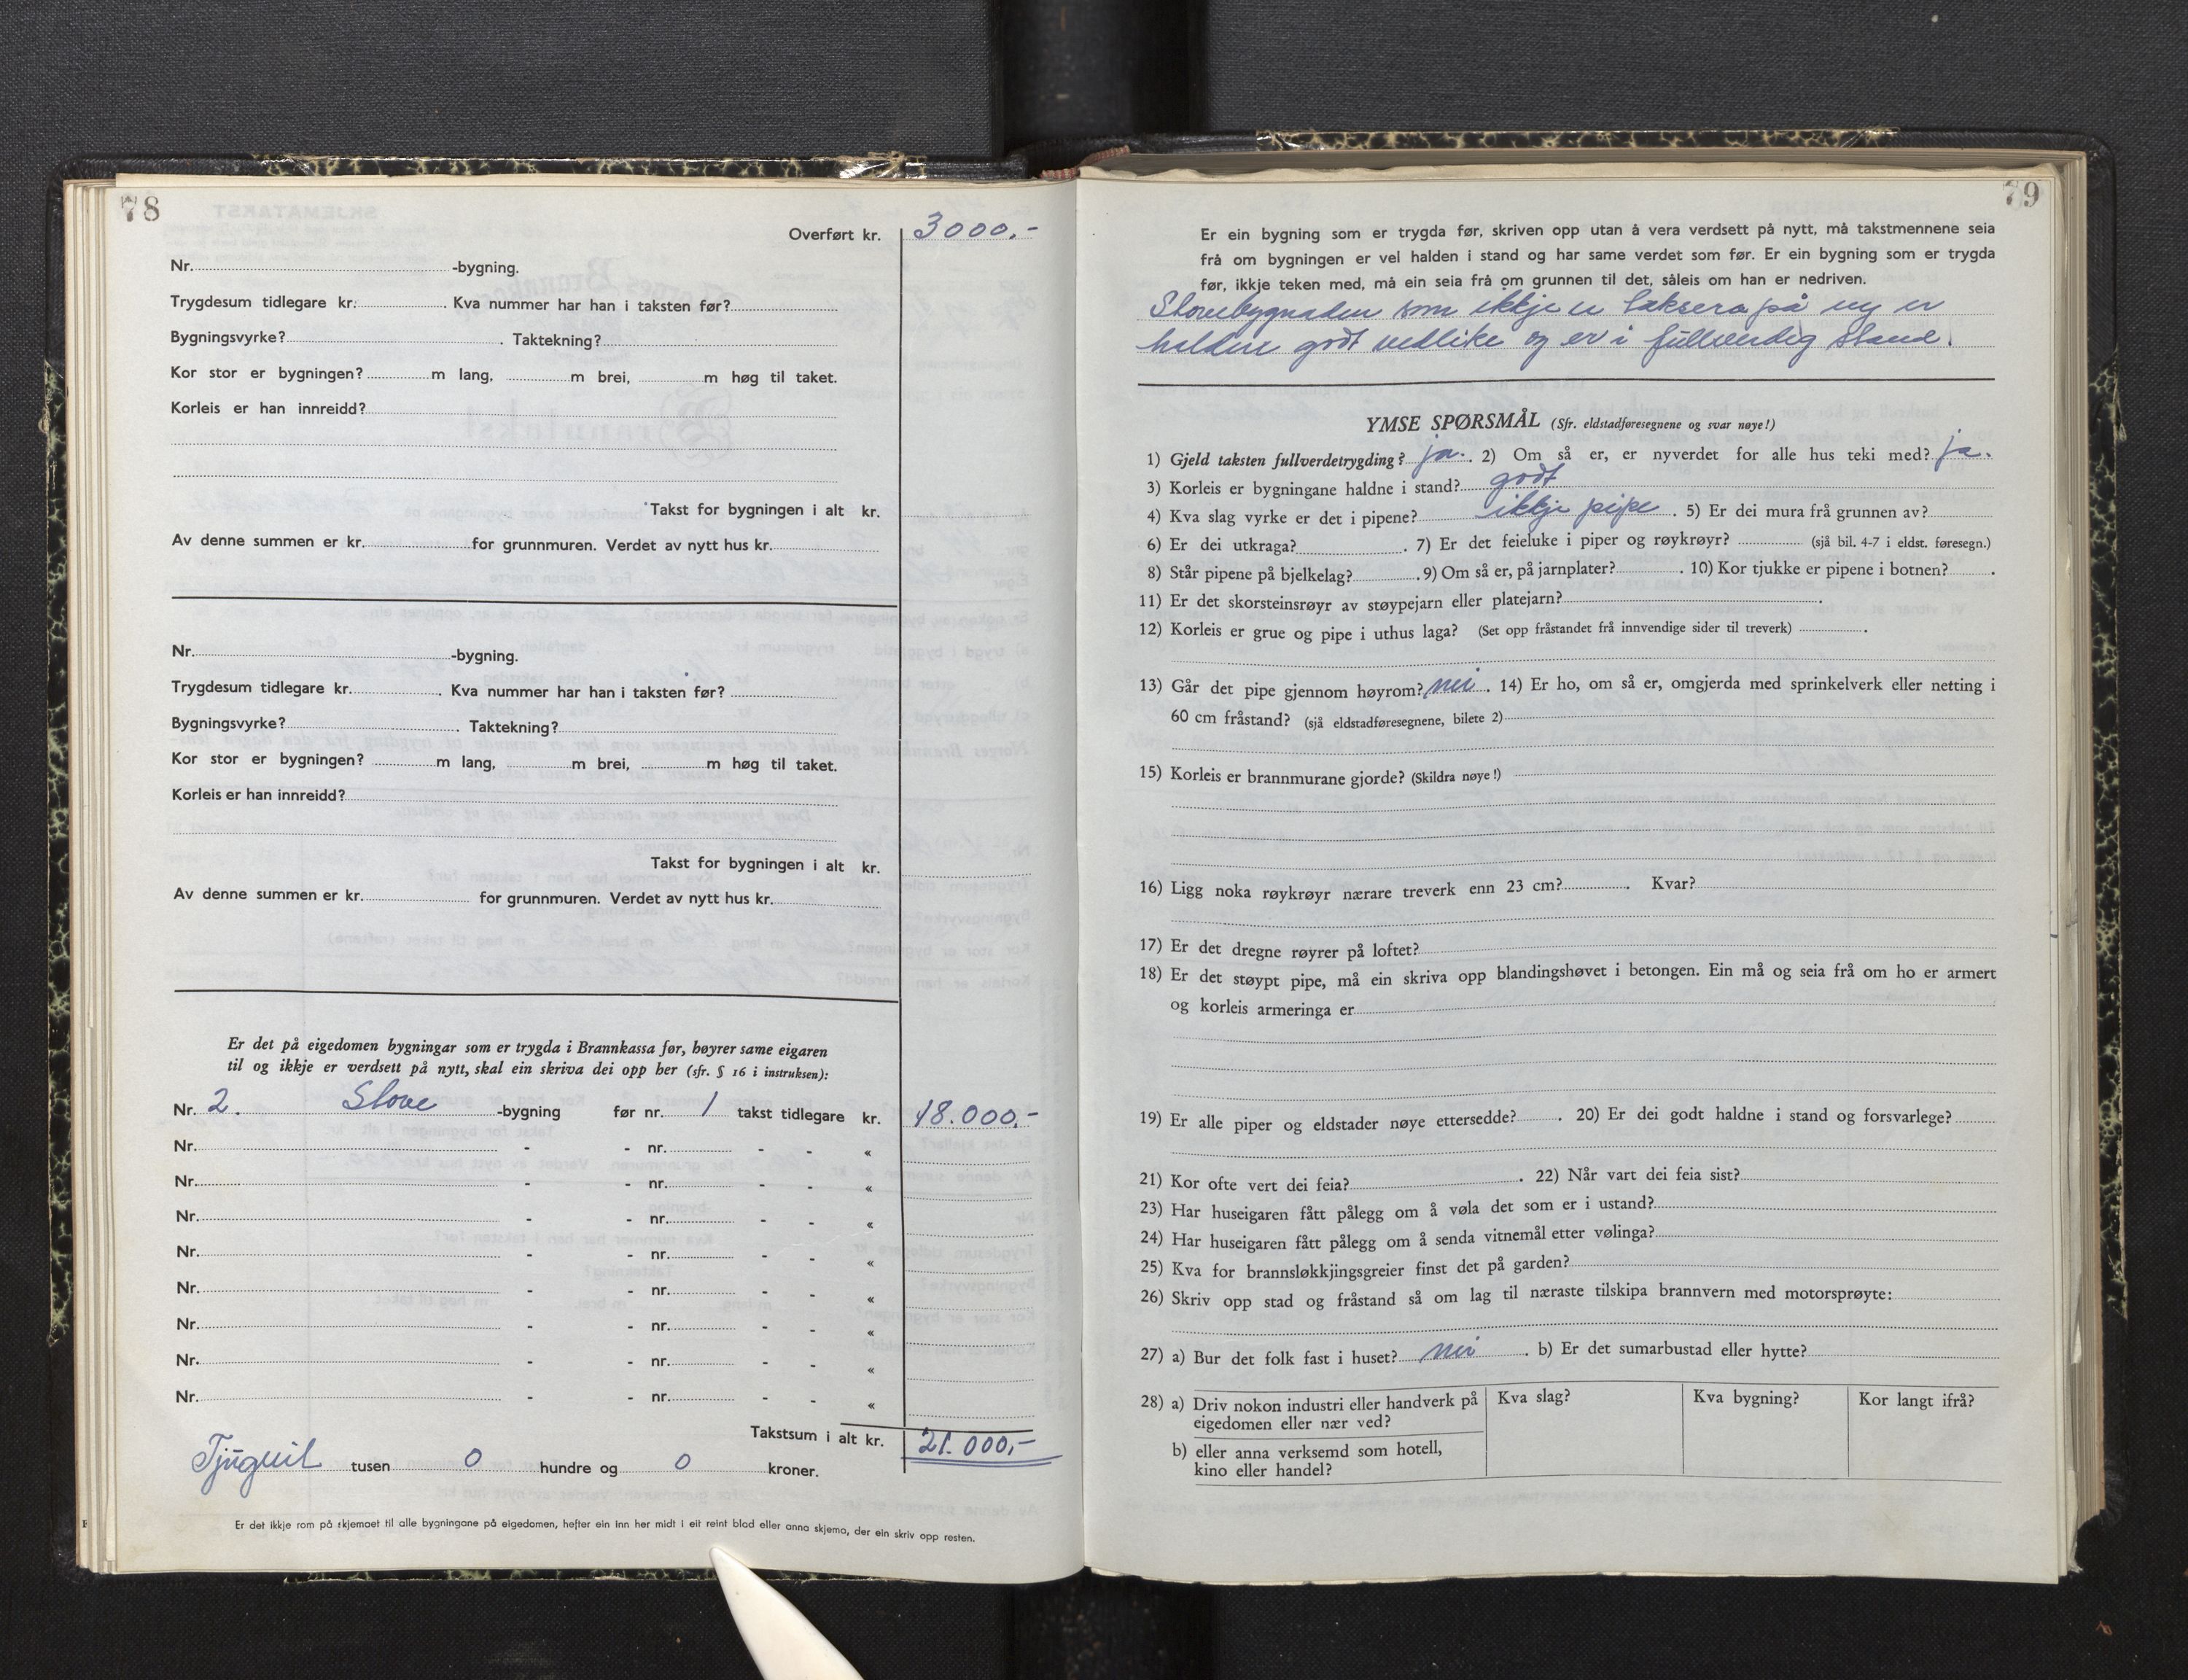 78
Overført kr. 3000.-
Nr. -bygning.
Trygdesum tidlegare kr. . Kva nummer har han i taksten før?
Bygningsvyrke? . Taktekning?
Kor stor er bygningen? m lang, m brei, m høg til taket.
Korleis er han innreidd?
Takst for bygningen i alt kr.
Av denne summen er kr. for grunnmuren. Verdet av nytt hus kr.
Nr. -bygning.
Trygdesum tidlegare kr. . Kva nummer har han i taksten før?
Bygningsvyrke? . Taktekning?
Kor stor er bygningen? m lang, m brei, m høg til taket.
Korleis er han innreidd?
Takst for bygningen i alt kr.
Av denne summen er kr. for grunnmuren. Verdet av nytt hus kr.
Er det på eigedomen bygningar som er trygda i Brannkassa før, høyrer same eigaren
til og ikkje er verdsett på nytt, skal ein skriva dei opp her (sfr. § 16 i instruksen):
Nr. 2. Stove -bygning før nr. 1 takst tidlegare kr. 18.000.-
Nr. - - nr. - - «
Nr. - - nr. - - «
Nr. - - nr. - - «
Nr. - - nr. - - «
Nr. - - nr. - - «
Nr. - - nr. - - «
Nr. - - nr. - - «
Nr. - - nr. - - «
Takstsum i alt kr. 21.000,-
Tjugueit tusen 0 hundre og 0 kroner.
Er det ikkje rom på skjemaet til alle bygningane på eigedomen, hefter ein inn her midt i eit reint blad eller anna skjema, der ein skriv opp resten.
79
Er ein bygning som er trygda før, skriven opp utan å vera verdsett på nytt, må takstmennene seia
frå om bygningen er vel halden i stand og har same verdet som før. Er ein bygning som er trygda
før, ikkje teken med, må ein seia frå om grunnen til det, såleis om han er nedriven.
Stovebygnaden som ikkje er taksera på ny er
haldne godt vedlike og er i fullverdig stand.
YMSE SPØRSMÅL (Sfr. eldstadføresegnene og svar nøye!)
1) Gjeld taksten fullverdetrygding? ja. . 2) Om så er, er nyverdet for alle hus teki med? ja.
3) Korleis er bygningane haldne i stand? godt
4) Kva slag vyrke er det i pipene? ikkje pipe . 5) Er dei mura frå grunnen av?
6) Er dei utkraga? . 7) Er det feieluke i piper og røykrøyr? (sjå bil. 4-7 i eldst. føresegn.)
8) Står pipene på bjelkelag? . 9) Om så er, på jarnplater? . 10) Kor tjukke er pipene i botnen? .
11) Er det skorsteinsrøyr av støypejarn eller platejarn? .
12) Korleis er grue og pipe i uthus laga? (Set opp fråstandet frå innvendige sider til treverk) .
13) Går det pipe gjennom høyrom? nei . 14) Er ho, om så er, omgjerda med sprinkelverk eller netting i
60 cm fråstand? (sjå eldstadføresegnene, bilete 2)
15) Korleis er brannmurane gjorde? (Skildra nøye!)
16) Ligg noka røykrøyr nærare treverk enn 23 cm? . Kvar?
17) Er det dregne røyrer på loftet?
18) Er det støypt pipe, må ein skriva opp blandingshøvet i betongen. Ein må og seia frå om ho er armert
og korleis armeringa er
19) Er alle piper og eldstader nøye ettersedde? . 20) Er dei godt haldne i stand og forsvarlege?
21) Kor ofte vert dei feia? . 22) Når vart dei feia sist?
23) Har huseigaren fått pålegg om å vøla det som er i ustand?
24) Har huseigaren fått pålegg om å senda vitnemål etter vølinga?
25) Kva for brannsløkkjingsgreier finst det på garden?
26) Skriv opp stad og fråstand så om lag til næraste tilskipa brannvern med motorsprøyte:
27) a) Bur det folk fast i huset? nei . b) Er det sumarbustad eller hytte?
28) a) Driv nokon industri eller handverk på Kva slag? Kva bygning? Kor langt ifrå?
eigedomen eller nær ved?
b) eller anna verksemd som hotell,
kino eller handel?